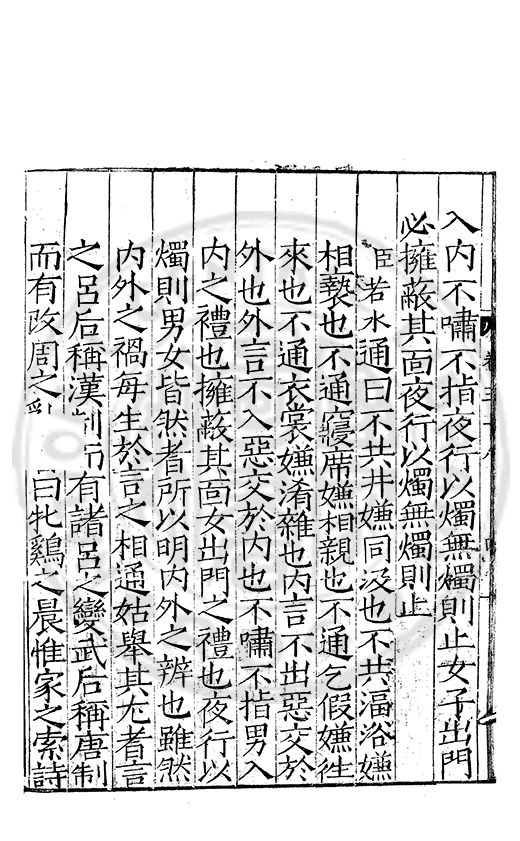 入内不嘯不指夜行以燭無燭則止女子出門
必擁蔽其面夜行以燭無燭則止
臣若水通曰不共井嫌同汲也不共湢浴嫌
相褻也不通寢席嫌相親也不通乞假嫌徃
來也不通衣裳嫌淆雜也内言不出惡交於
外也外言不入惡交於内也不嘯不指男入
内之禮也擁蔽其面女出門之禮也夜行以
燭則男女皆然者所以明内外之辨也雖然
内外之禍每生於言之相通姑舉其尤者言
之呂后稱漢制而有諸呂之變武后稱唐制
而有改周之亂 曰牝鷄之晨惟家之索詩